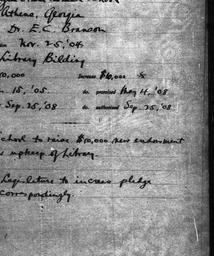 Athens, Georgia
Dr. E.C. Branson
Nov. 25, '04
Library Bilding
0,000 Increase $10,000 x
15, '05 to promised May 4, '08
Sep. 25, '08 to authorized Sep. 25, '08
school to raise $10,000 new endowment
upkeep of Library.
Legislature to increas pledge
correspondingly.